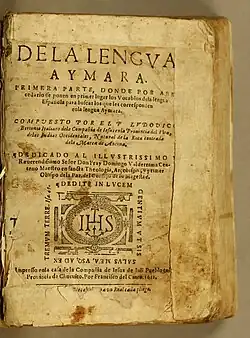 DELA LENGVA
AYMARA.
PRIMERA PARTE, DONDE POR ABE
cedario se ponen en primer lugar los Vocablos dela lengua
Española para buscar los que les corresponden
en la lengua Aymara.
COMPUESTO POR EL P. LVDOVICO
Bertonio Italiano dela Compañia de Iesus en la Prouincia del Piru,
de las Indias Occidentales, Natural de la Roca contrada
dela Marca de Ancona.
DEDICADO AL ILLVSTRISSIMO
Reuerendissimo Señor Don Fray Domingo Valderrama Cen
teno Maestro en sancta Theologia, Arçobispo, y primer
Obispo dela Paz, del Consejo de su Magestad.
DEDITE IN LVCEM
IHS
Impresso en la casa de la Compañia de Iesus de Iuli Pueblo en la
Prouincia de Chucuito. Por Francisco del Canto. 1612.